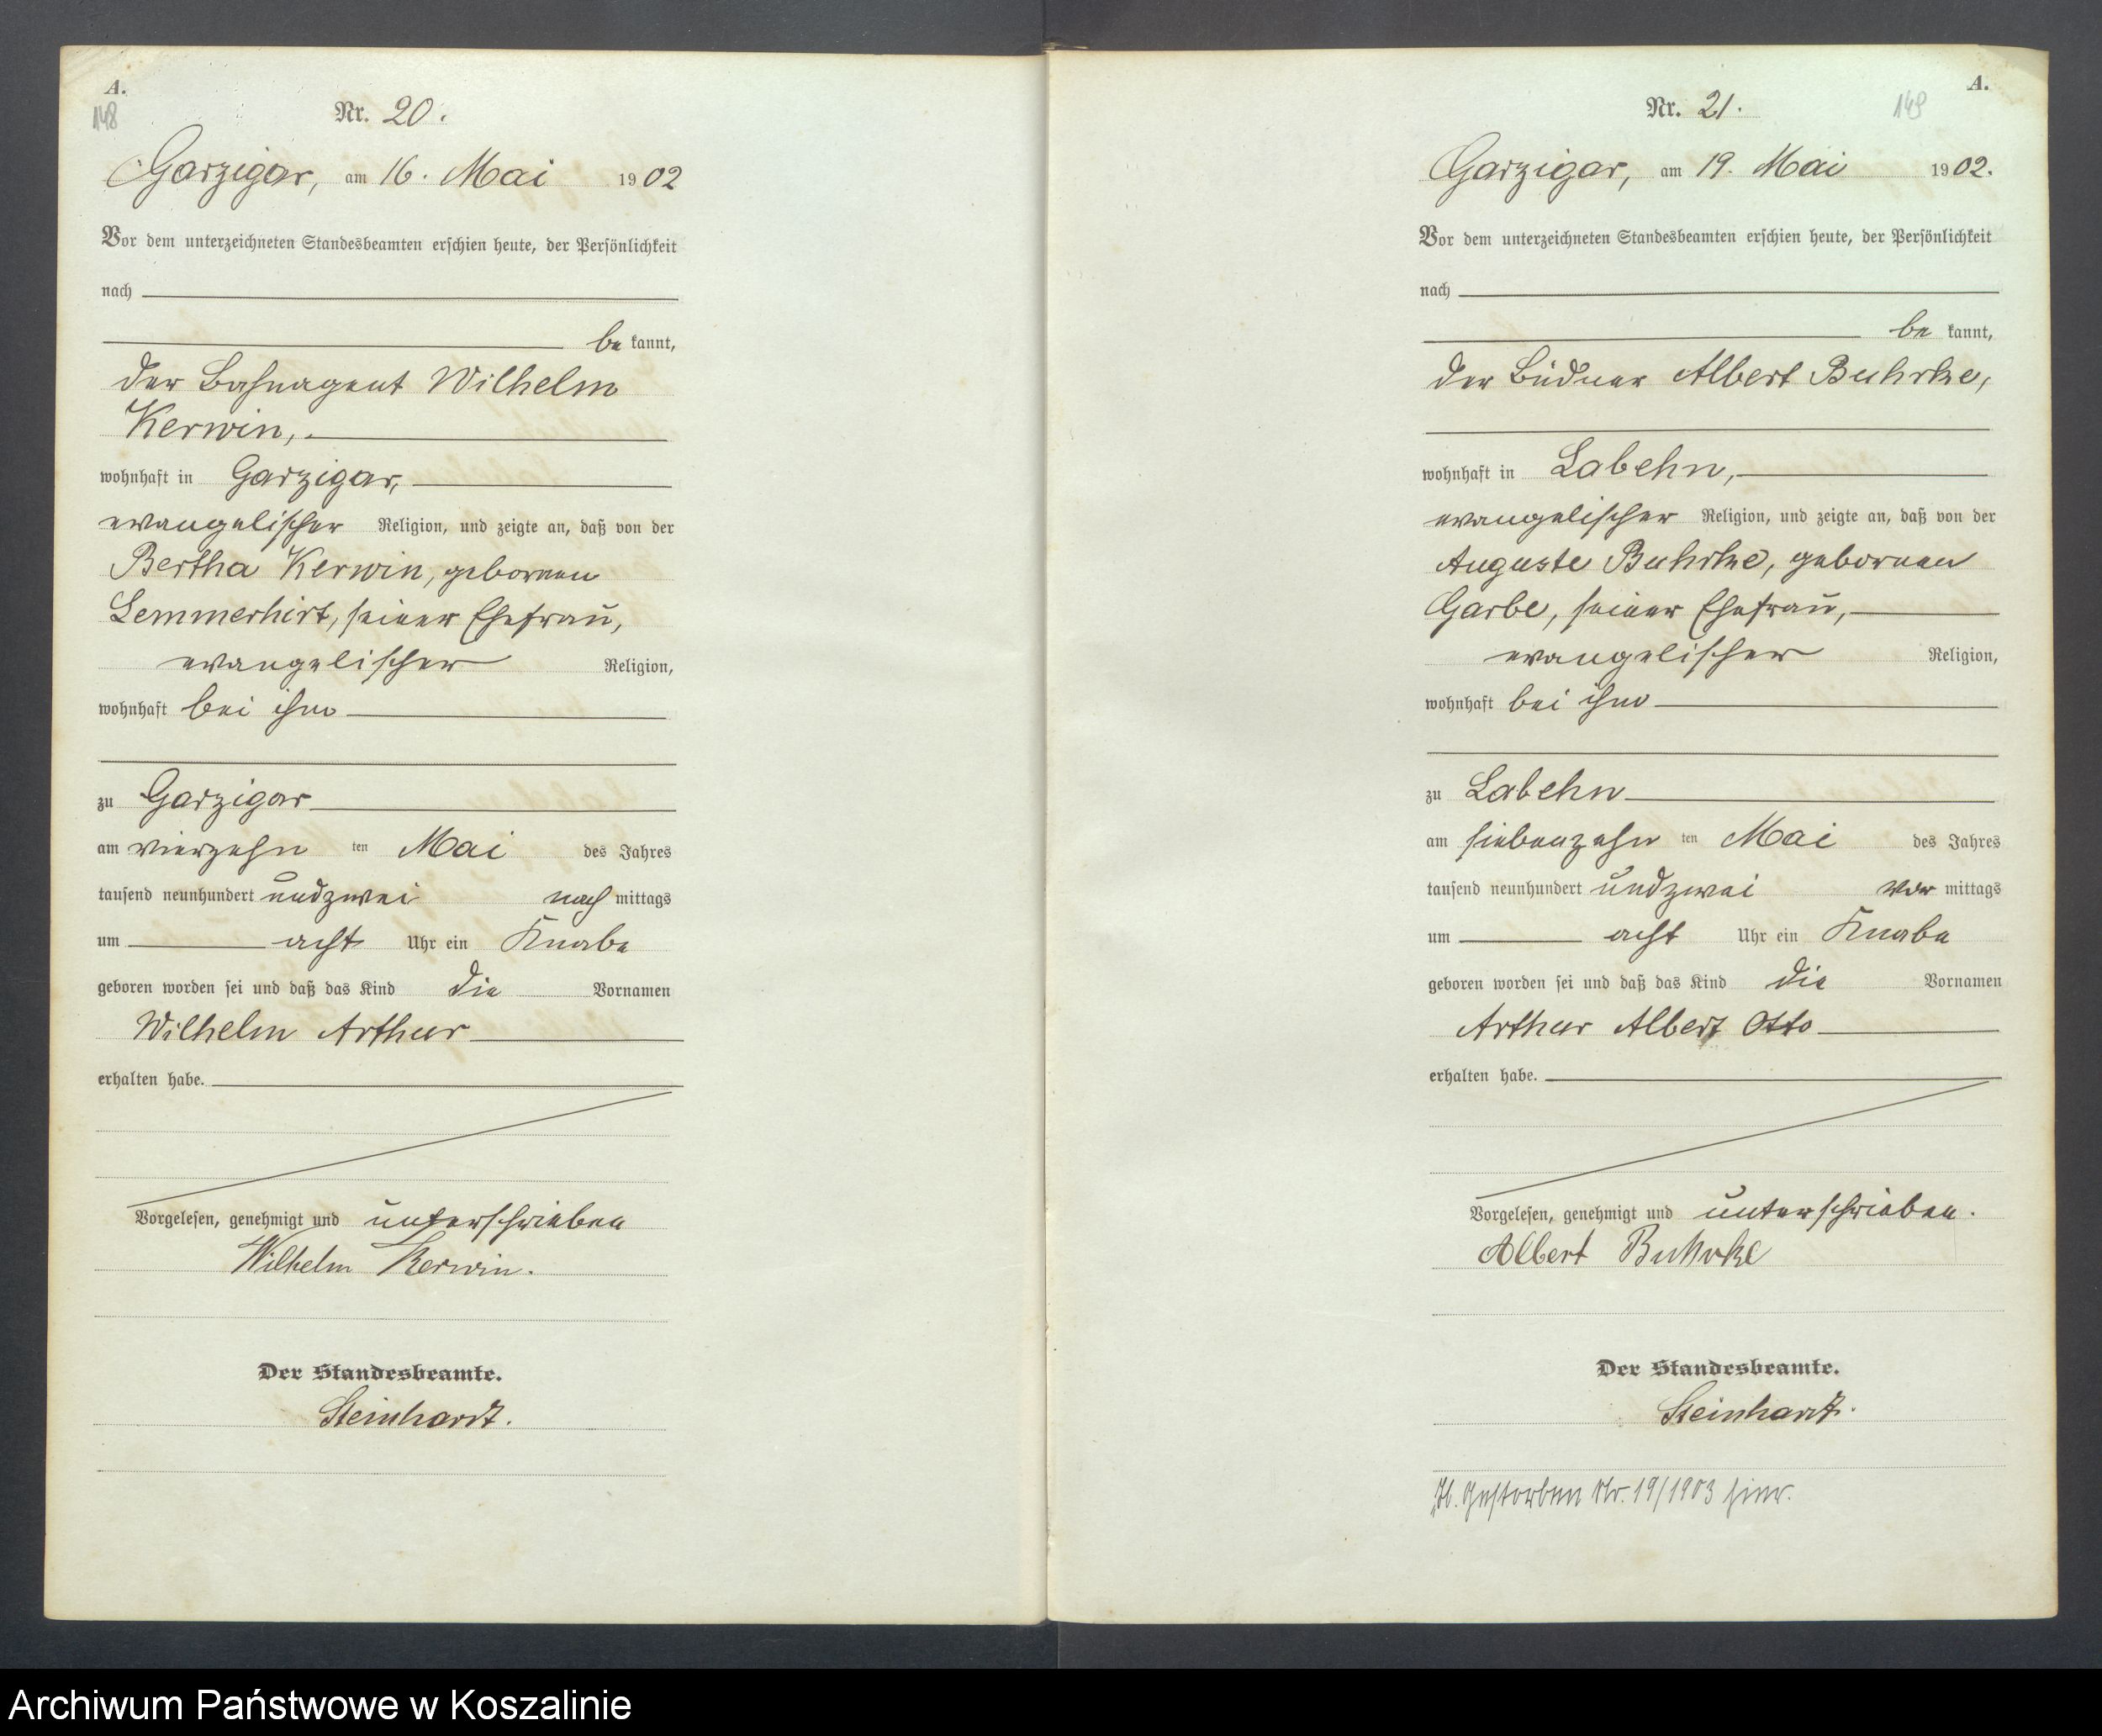 A.
148
Nr. 20.
Garzigar, am 16. Mai 1902
Vor dem unterzeichneten Standesbeamten erschien heute, der Persönlichkeit
nach
be kannt,
der Bahnagent Wilhelm
Kerwin,
wohnhaft in Garzigar,
evangelischer Religion, und zeigte an, daß von der
Bertha Kerwin, geborenen
Lemmerhirt, seiner Ehefrau,
evangelischer Religion,
wohnhaft bei ihm
zu Garzigar
am vierzehn ten Mai des Jahres
tausend neunhundert und zwei nach mittags
um acht Uhr ein Knabe
geboren worden sei und daß das Kind die Vornamen
Wilhelm Arthur
erhalten habe.
Vorgelesen, genehmigt und unterschrieben
Wilhelm Kerwin.
Der Standesbeamte.
Steinhardt.
A.
149
Nr. 21.
Garzigar, am 19. Mai 1902.
Vor dem unterzeichneten Standesbeamten erschien heute, der Persönlichkeit
nach
be kannt,
der Büdner Albert Buhrke,
wohnhaft in Labehn,
evangelischer Religion, und zeigte an, daß von der
Auguste Buhrke, geborenen
Garbe, seiner Ehefrau,
evangelischer Religion,
wohnhaft bei ihm
zu Labehn
am siebenzehn ten Mai des Jahres
tausend neunhundert und zwei vor mittags
um acht Uhr ein Knabe
geboren worden sei und daß das Kind die Vornamen
Arthur Albert Otto
erhalten habe.
Vorgelesen, genehmigt und unterschrieben.
Albert Buhrke
Der Standesbeamte.
Steinhardt.
Gestorben Nr. 19/1903 hier.
Archiwum Państwowe w Koszalinie